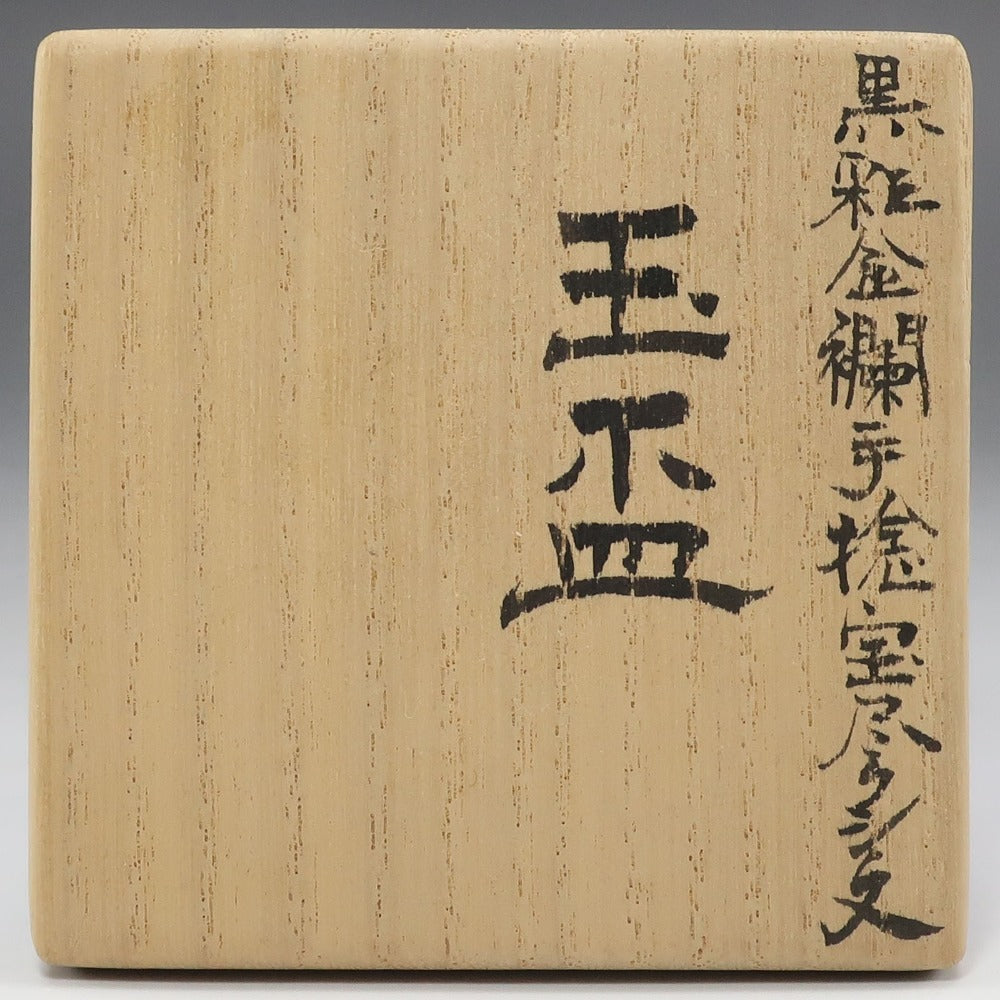 黒釉金襴手捻宝尽シ文
玉盃